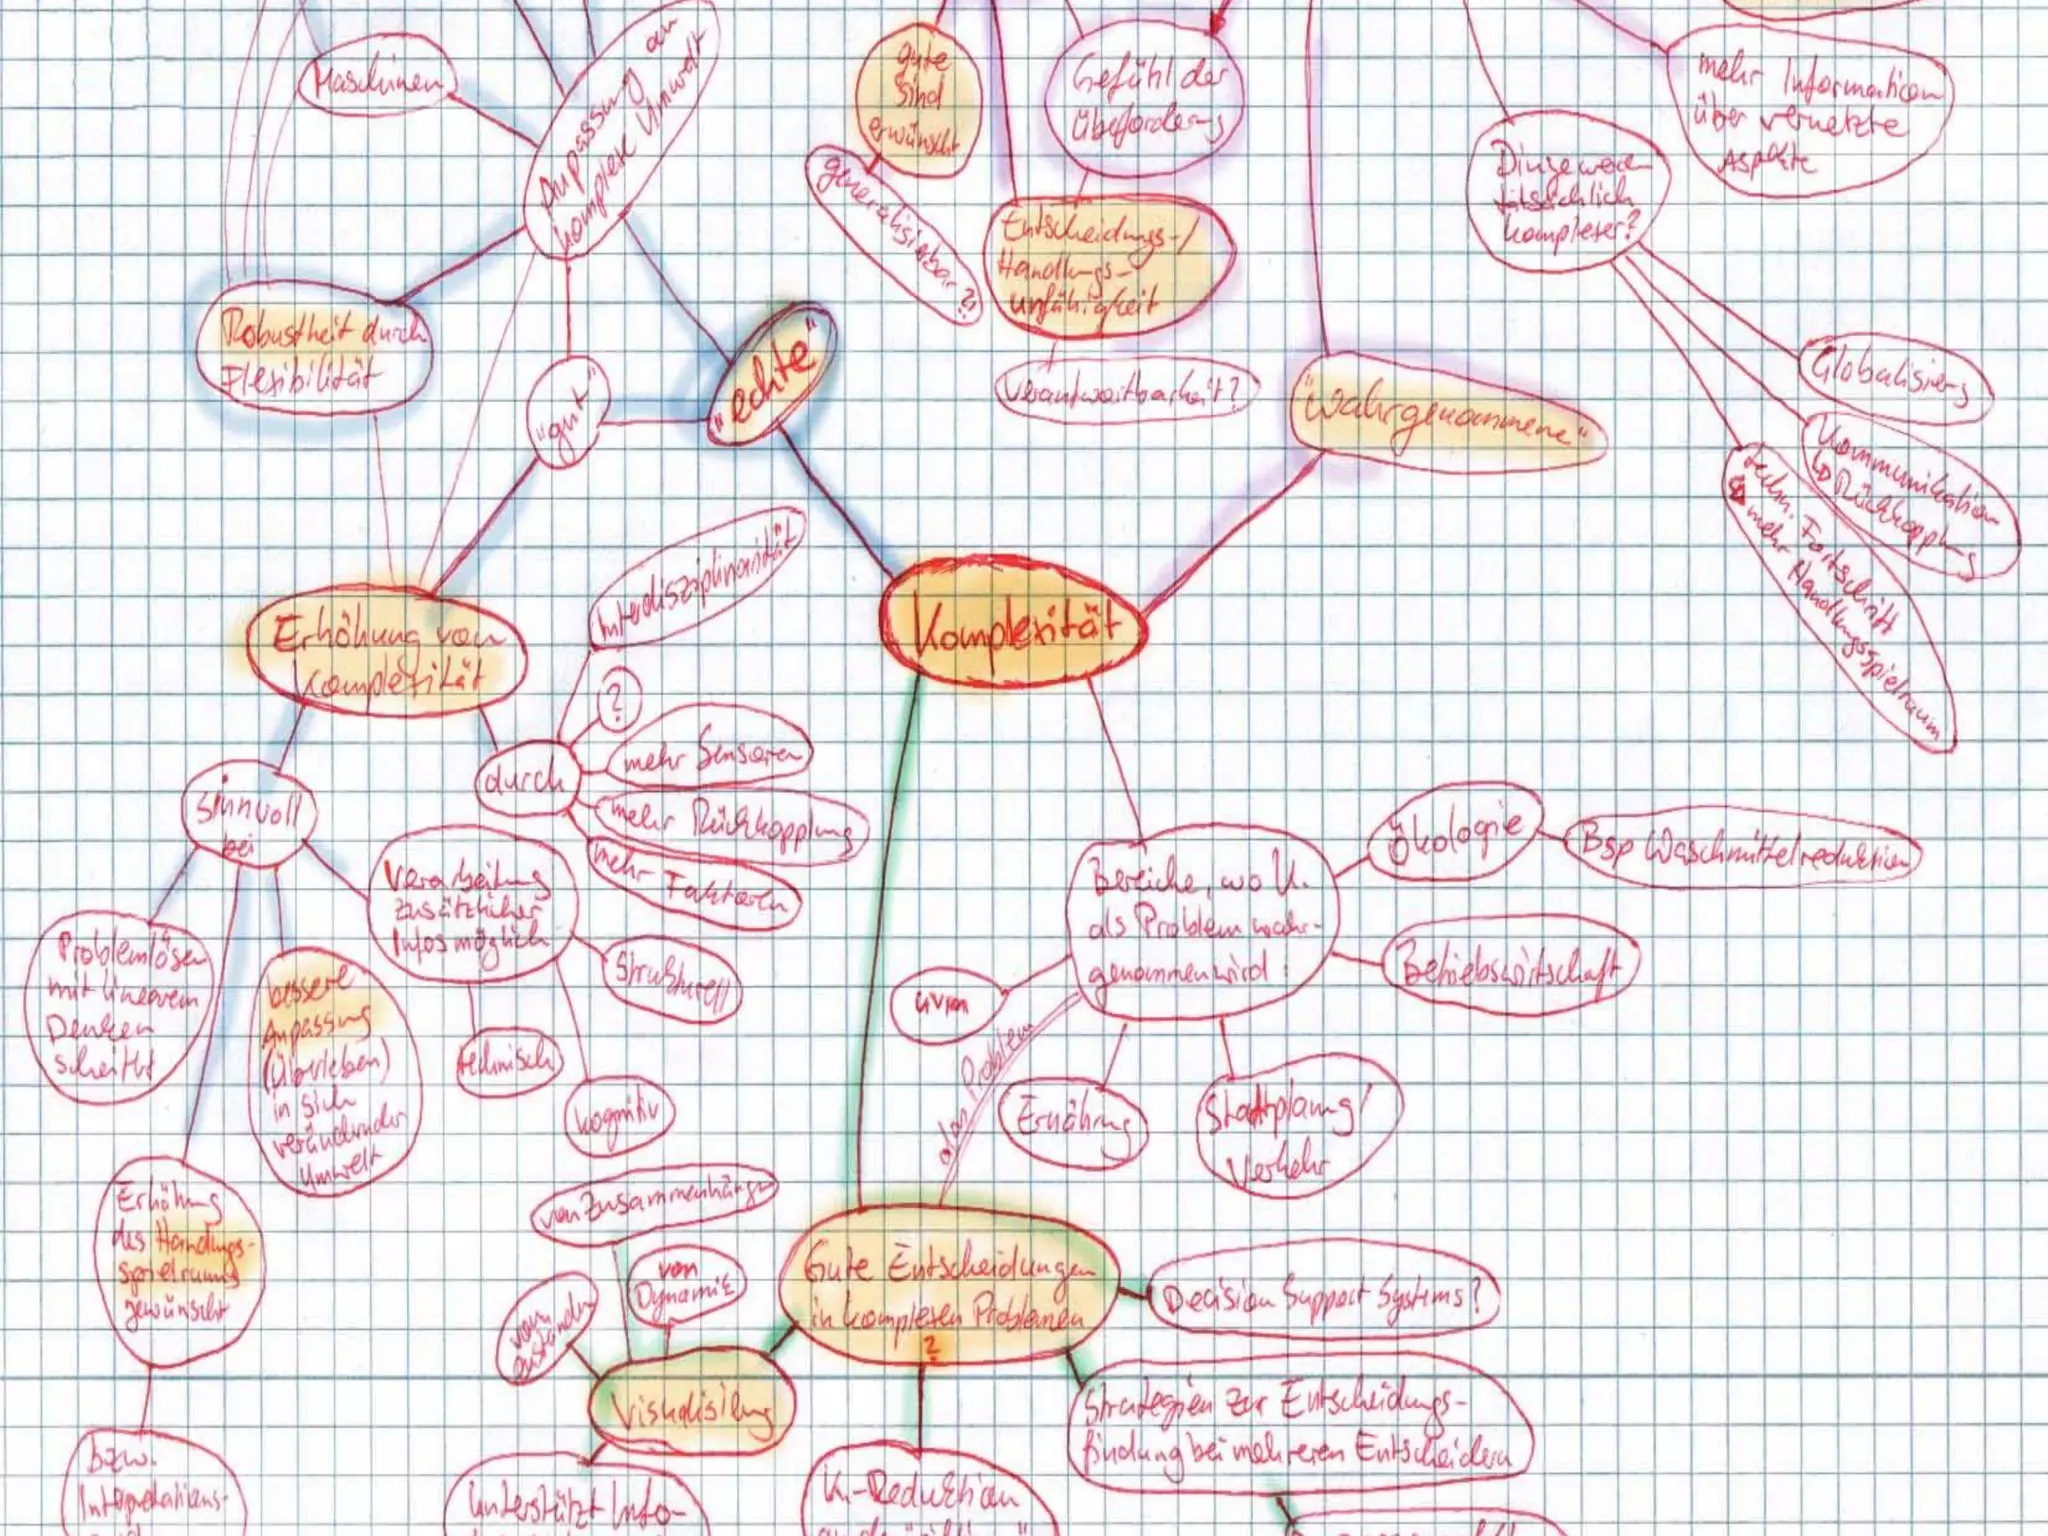 Maschinen
Anpassung an
komplexe Umwelt
gute
sind
erwünscht
generalisierbar?!
Gefühl der
Überforderung
mehr Information
über vernetzte
Aspekte
Dinge werden
tatsächlich
komplexer?
Entscheidungs-/
Handlungs-
unfähigkeit
Verantwortbarkeit?
Robustheit durch
Flexibilität
"echte"
"gut"
"Wahrgenommene"
Globalisierg
Kommunikation
↳ Rückkopplung
techn. Fortschritt
mehr Handlungsspielraum
Interdisziplinarität
Komplexität
Erhöhung von
Komplexität
?
durch
mehr Sensoren
mehr Rückkopplung
mehr Faktoren
sinnvoll
bei
Verarbeitung
zusätzlicher
Infos möglich
Strukturell
technisch
kognitiv
Problemlösen
mit linearem
Denken
scheitert
bessere
Anpassung
(Überleben)
in sich
verändernder
Umwelt
Erhöhung
des Handlungs-
spielraums
gewünscht
bzw.
Interpretations-
Bereiche, wo K.
als Problem wahr-
genommen wird:
Ökologie
Bsp Waschmittelreduktion
Betriebswirtschaft
Ernährung
Stadtplanung/
Verkehr
Problem
von Zusammenhängen
von
Dynamik
vom
Zustand
Visualisierung
Gute Entscheidungen
in komplexen Problemen
?
Decision Support Systems?
Strategien zur Entscheidungs-
findung bei mehreren Entscheidern
unterstützt Info-
K.-Reduktion